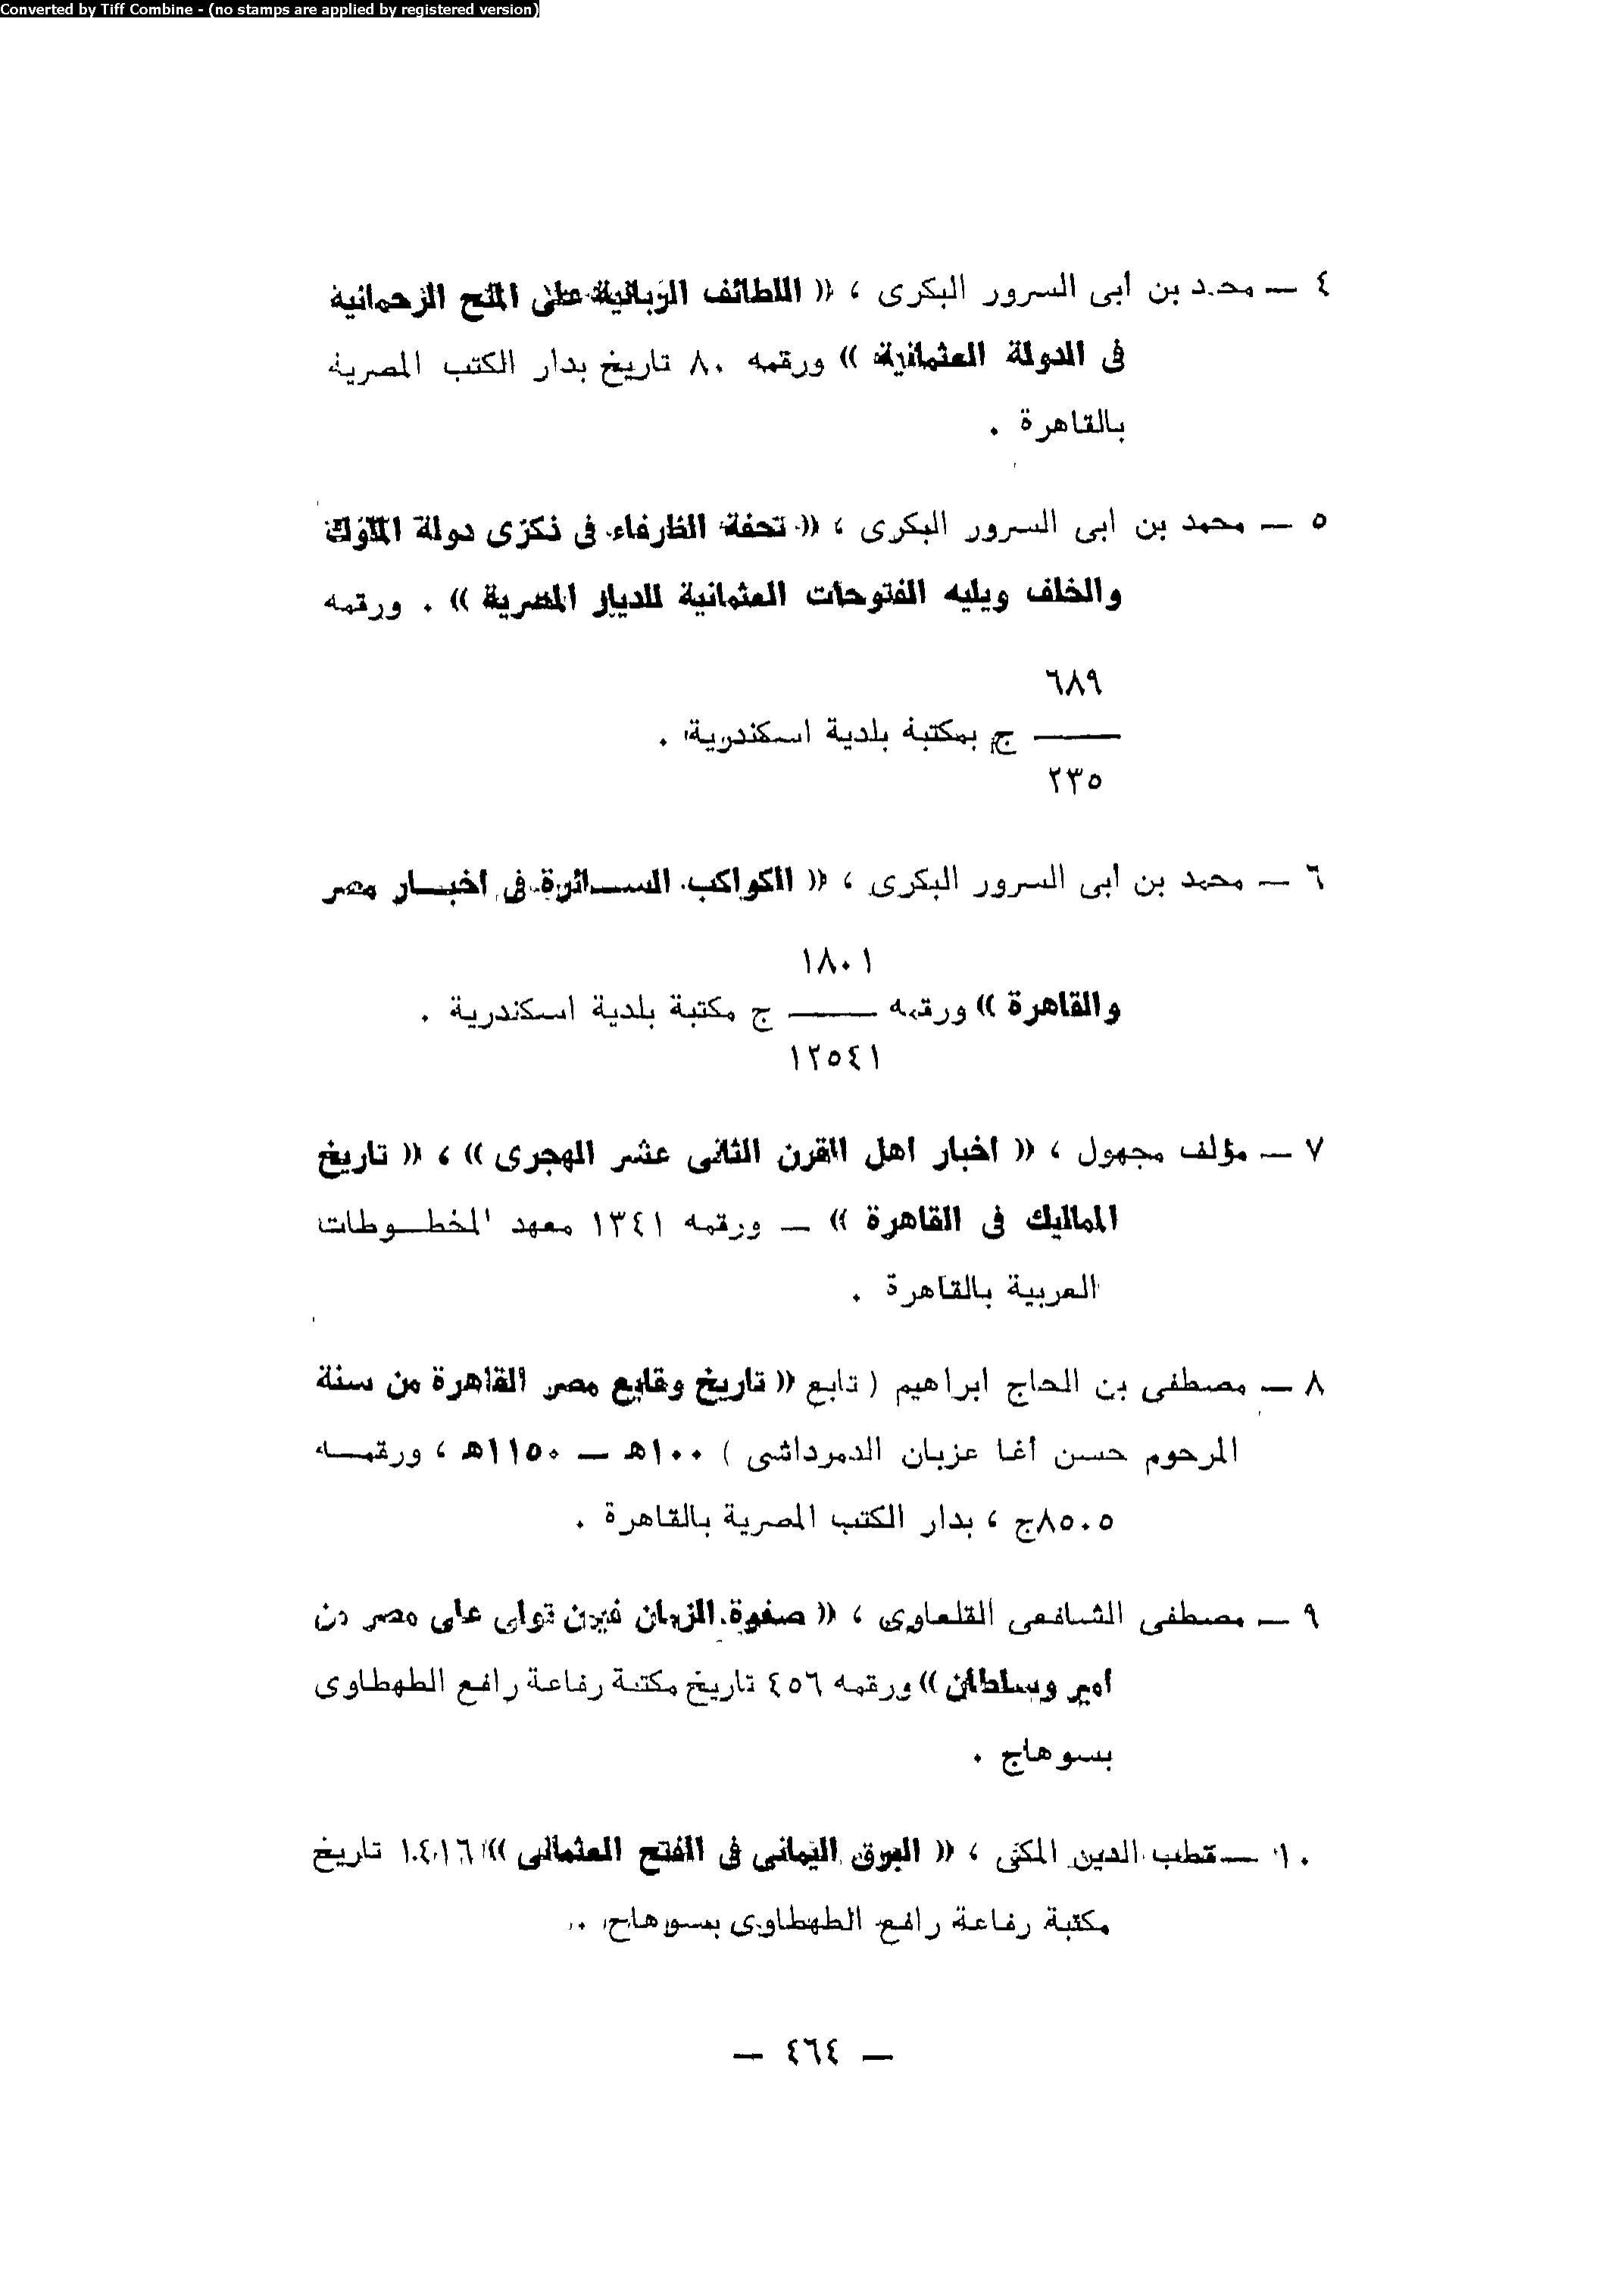 Converted by Tiff Combine - (no stamps are applied by registered version)
٤ — محمد بن أبى السرور البكرى ، « اللطائف الربانية على المنح الرحمانية
فى الدولة العثمانية » ورقمه ٨٠ تاريخ بدار الكتب المصرية
بالقاهرة .
٥ — محمد بن ابى السرور البكرى ، « تحفة الظرفاء فى ذكرى دولة الملوك
والخلف ويليه الفتوحات العثمانية للديار المصرية » . ورقمه
٦٨٩
—— ج بمكتبة بلدية اسكندرية .
٢٣٥
٦ — محمد بن ابى السرور البكرى ، « الكواكب السائرة فى اخبار مصر
١٨٠١
والقاهرة » ورقمه —— ج مكتبة بلدية اسكندرية .
١٢٥٤١
٧ — مؤلف مجهول ، « اخبار اهل القرن الثانى عشر الهجرى » ، « تاريخ
المماليك فى القاهرة » — ورقمه ١٣٤١ معهد المخطوطات
العربية بالقاهرة .
٨ — مصطفى بن الحاج ابراهيم ( تابع « تاريخ وقايع مصر القاهرة من سنة
المرحوم حسن أغا عزبان الدمرداشى ) ١٠٠هـ — ١١٥٠هـ ، ورقمه
٨٥٠٥ج ، بدار الكتب المصرية بالقاهرة .
٩ — مصطفى الشافعى القلعاوى ، « صفوة الزمان فيمن تولى على مصر من
امير وسلطان » ورقمه ٤٥٦ تاريخ مكتبة رفاعة رافع الطهطاوى
بسوهاج .
١٠ — قطب الدين المكى ، « البرق اليمانى فى الفتح العثمانى » تاريخ
مكتبة رفاعة رافع الطهطاوى بسوهاج .
— ٤٦٤ —